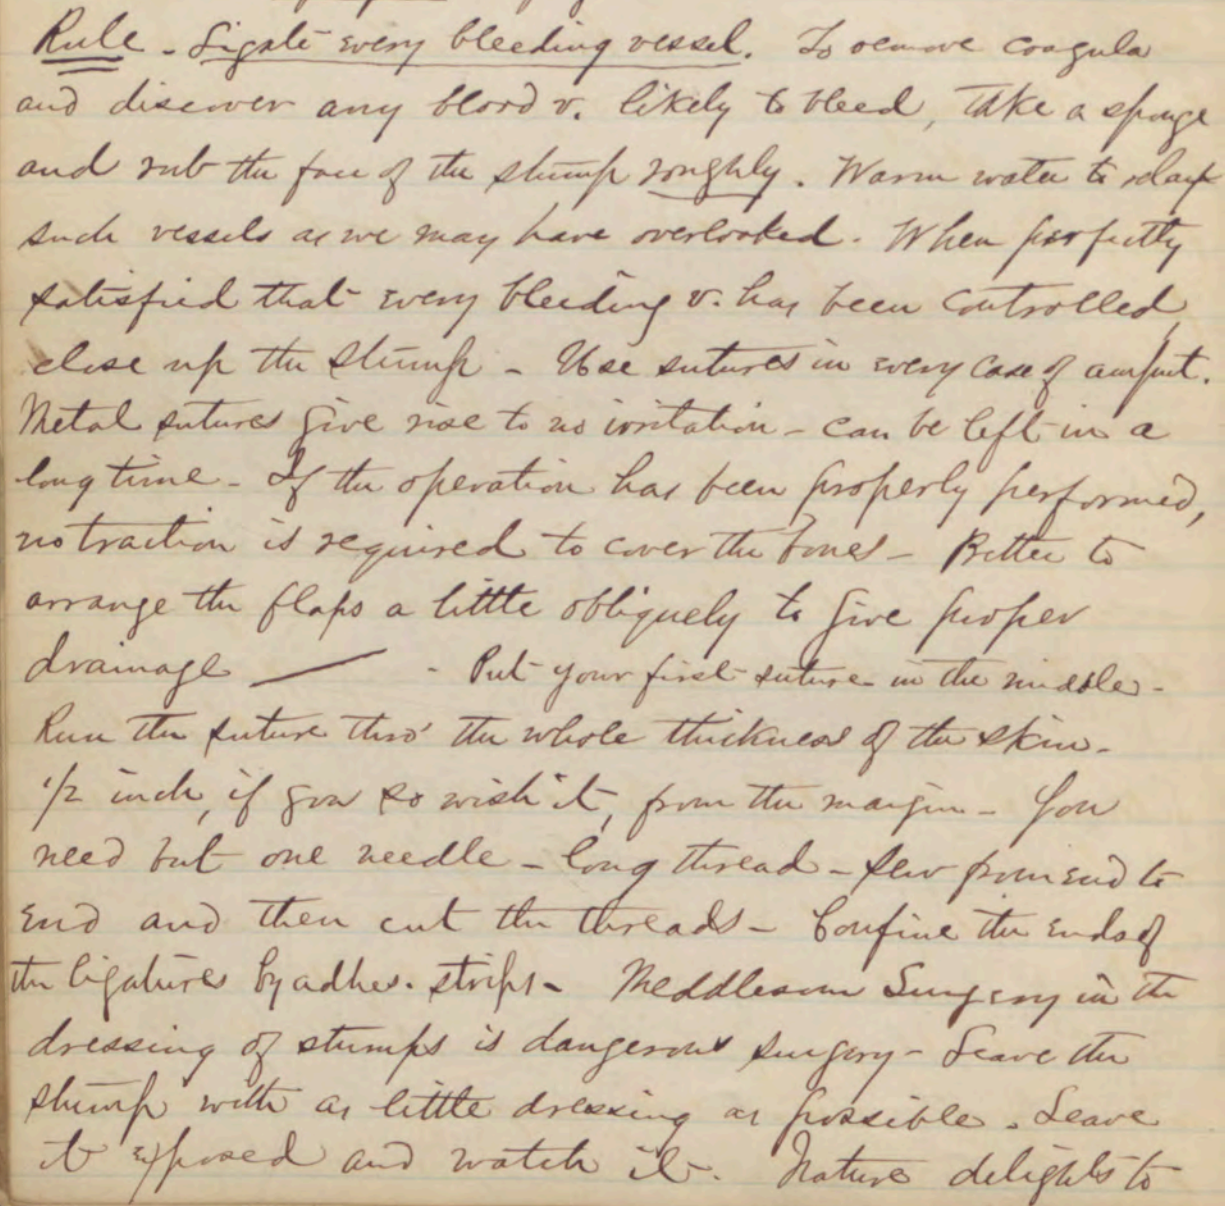 Rule - Ligate every bleeding vessel. To remove coagula
and discover any blood v. likely to bleed, take a sponge
and rub the face of the stump roughly. Warm water to relax
such vessels as we may have overlooked. When perfectly
satisfied that every bleeding v. has been controlled,
close up the stump - Use sutures in every case of amput.
Metal sutures give rise to no irritation - can be left in a
long time - If the operation has been properly performed,
no traction is required to cover the bones - Better to
arrange the flaps a little obliquely to give proper
drainage - Put your first suture in the middle -
Run the suture thro' the whole thickness of the skin -
1/2 inch, if you so wish it, from the margin - You
need but one needle - long thread - sew from end to
end and then cut the threads - Confine the ends of
the ligatures by adhes. strips - Meddlesome Surgery in the
dressing of stumps is dangerous surgery - Leave the
stump with as little dressing as possible. Leave
it exposed and watch it. Nature delights to